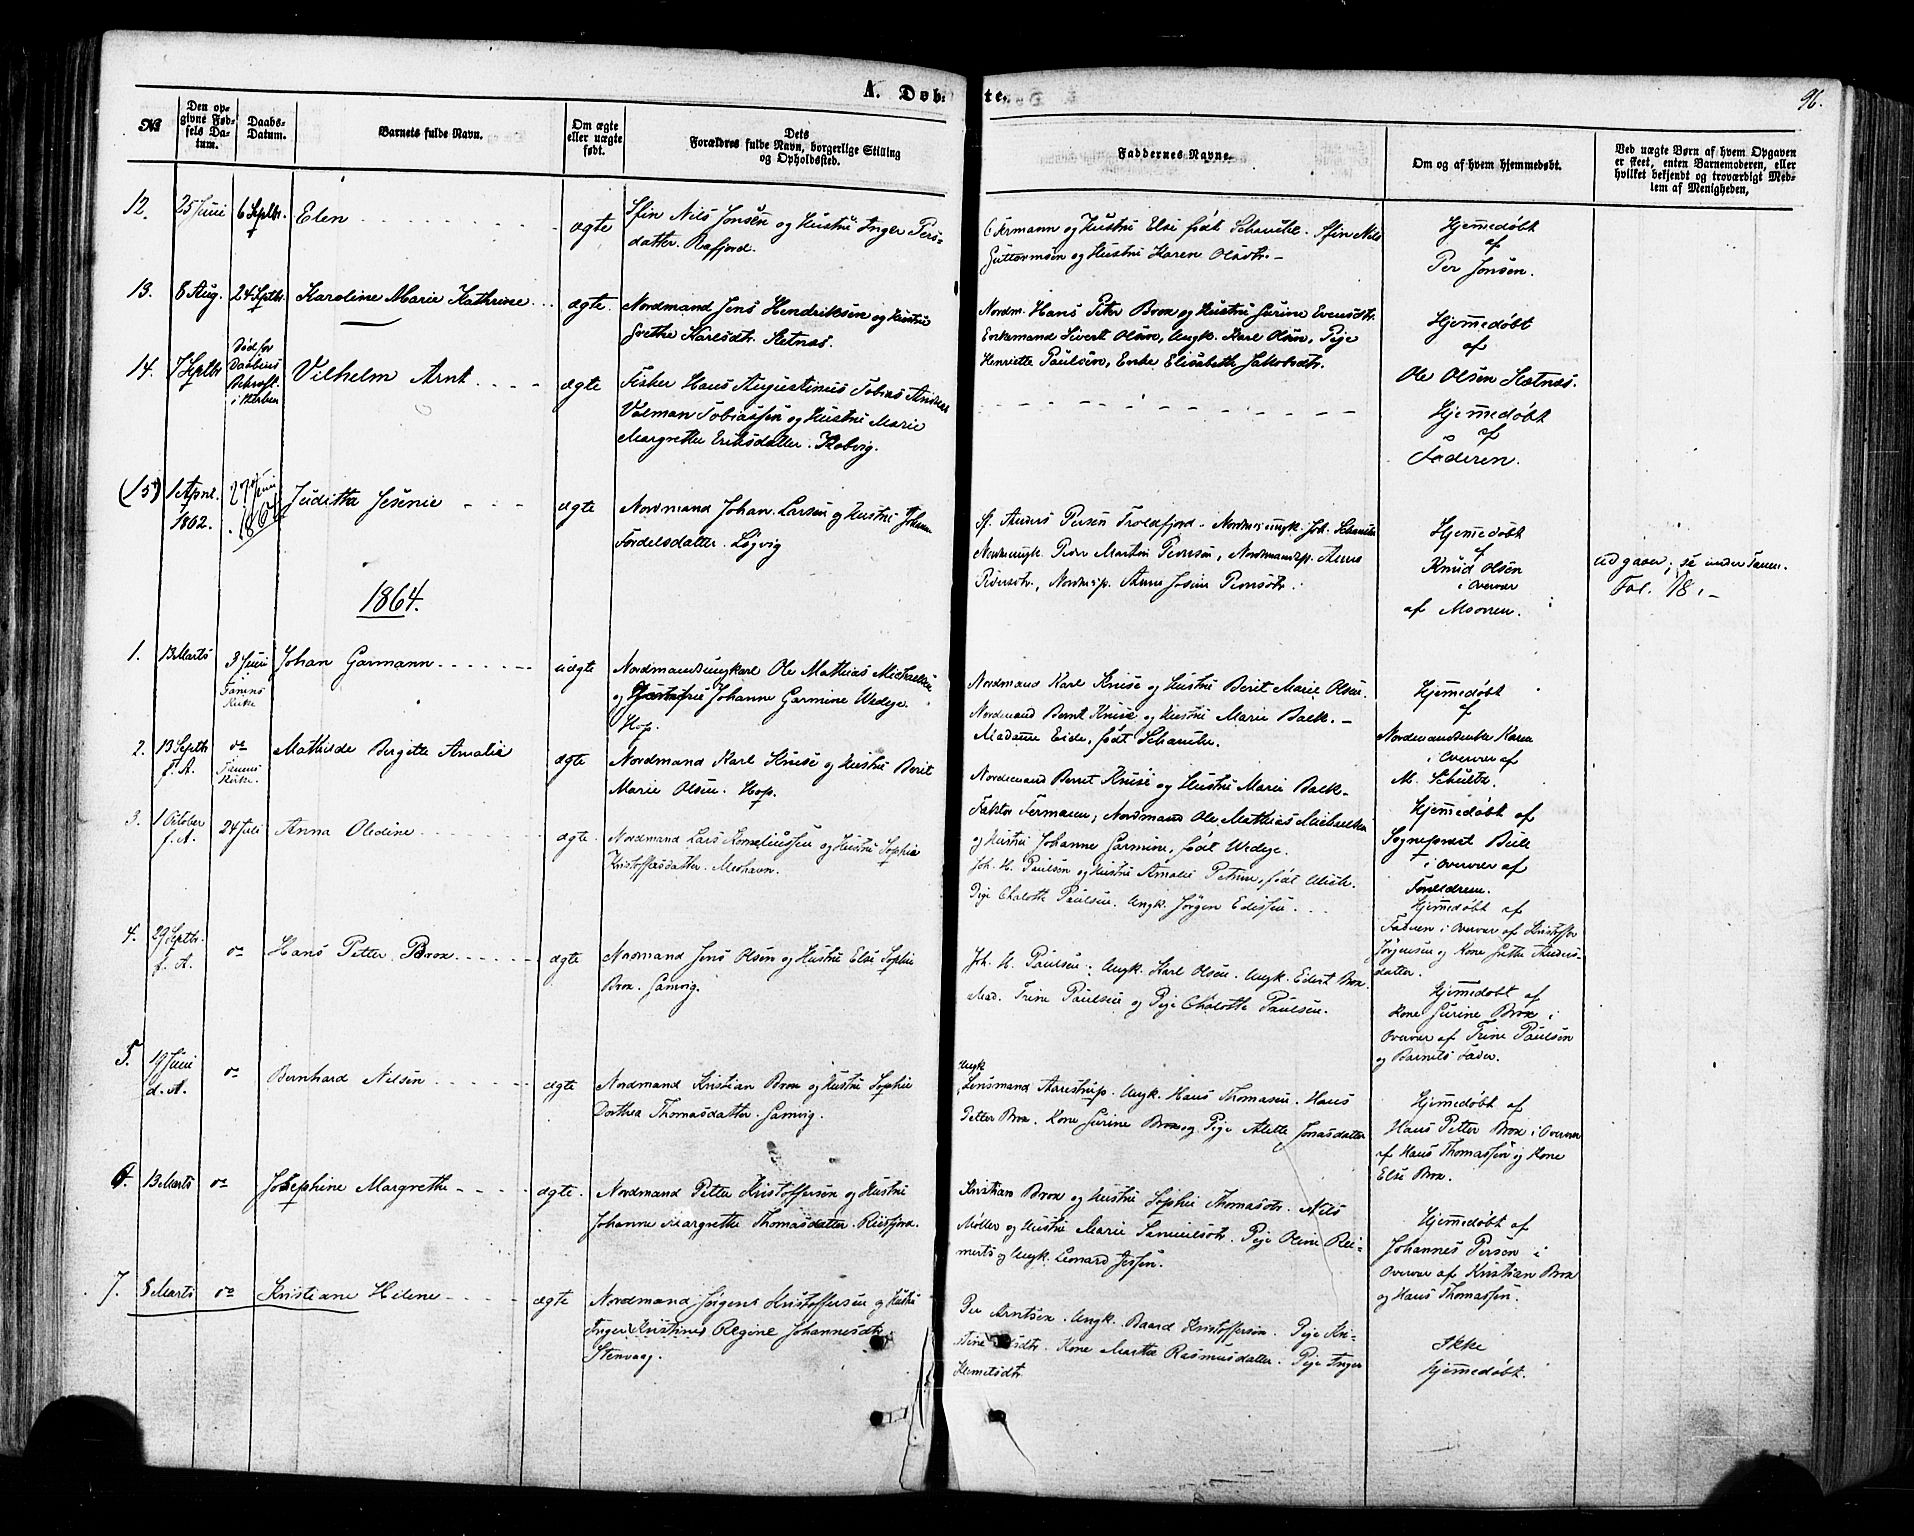 A. Døbte.
96.
No
Den opgivne Fødsels Datum.
Daabs-Datum.
Barnets fulde Navn.
Om ægte eller uægte født.
Dets Forældres fulde Navn, borgerlige Stilling og Opholdssted.
Faddernes Navne.
Om og af hvem hjemmedøbt.
Ved uægte Børn af hvem Opgaven er skeet, enten Barnemoderen, eller hvilket bekjendt og troværdigt Medlem af Menigheden,
12. 25 Juni 6 Septbr. Elen ægte
Sfin Nils Jonsen og Hustru Inger Pers-
datter. Rafjord.
og Hustru Elsi født Schanche. Sfin Nils
Guttormsen og Hustru Karen Olsdtr. -
Hjemmedøbt
af
Per Jonsen.
13. 8 Aug. 24 Septbr. Karoline Marie Kathrine ægte.
Nordmand Jens Hendriksen og Hustru
Grethe Karlsdtr. Sletnæs.
Nordm. Hans Peter Brox og Hustru Gurine Evensdtr.
Enkemand Sivert Olsen, Ungk. Karl Olsen, Pige
Henriette Paulsen, Enke Elisabeth Jakobsdtr.
Hjemmedøbt
af
Ole Olsen Sletnæs.
14. 7 Septbr. Død før
Daabens
Bekræft.
i Kirken
Vilhelm Arnt ægte
Fisker Hans Augustinus Tobias Andreas
Volman Tobiassen og Hustru Marie
Margrethe Eriksdatter. Skobvig.
Hjemmedøbt
af
Faderen.
(15) 1 April 1862. 27 Juni 1864 Juditha Jesenie ægte
Nordmand Johan Larsen og Hustru
Tordelsdatter. Løgvig
Anders Persen Troldfjord.
Martin
Hjemmedøbt
af
Knud Olsen
i Overvær
af Moren.
udgaaer; se under Tanen.
Fol. 18. -
1864.
1. 13 Marts 3 Juni
i
Tanens
Kirke
Johan Garmann uægte
Nordmandsungkarl Ole Mathias Michaelsen
og Johanne Garmine Wedege.
Hop.
Nordmand Karl Knise og Hustru Berit Marie Olsen.
Nordmand Bernt Knise og Hustru Marie Balk. -
Madame Eide, født Schanche.
Hjemmedøbt
af
Nordmandsenke Karen
i Overvær af
M. Schultz.
2. 13 Septbr. f. A. do Tanens Kirke. Mathilde Birgitte Amalia ægte
Nordmand Karl Knise og Hustru Berit
Marie Olsen. Hop.
Nordmand Bernt Knise og Hustru Marie Balk -
Faktor Fermann, Nordmand Ole Matthias Michaelsen
og Hustru Johanne Garmine, født Wedege.
Hjemmedøbt af
Sognepræst
i Overvær af
Forældrene.
3. 1 October f. A. 24 Juli Anna Oledine ægte.
Nordmand Lars Korneliussen og Hustru Sophie
Kristoffersdatter. Mehavn.
Joh. H. Paulsen og Hustru Amalie Petrine, født Ulich.
Pige Chalotte Paulsen. Ungk. Jørgen Edissen.
Hjemmedøbt af
Faderen i Overvær af Kristoffer
Jørgensen og Kone Grethe Anders-
datter.
4. 29 Septbr. f. A. do Hans Petter Brox ægte
Nordmand Jens Olsen og Hustru Elsi Sophie
Brox. Gamvig.
Joh. H. Paulsen. Ungk. Karl Olsen. Ungk. Edert Brox
Mad. Trine Paulsen og Pige Chalotte Paulsen.
Hjemmedøbt af
Kone Gurine Brox i
Overvær af Trine Paulsen
og Barnets Fader.
5. 19 Juni d. A. do Bernhard Nilsen ægte
Nordmand Kristian Brox og Hustru Sophie
Dorthea Thomasdatter. Gamvig.
Ungk
Lensmand Aarestrup. Ungk. Hans Thomasen. Hans
Petter Brox. Kone Gurine Brox og Pige Alette Jonasdatter
Hjemmedøbt af
Hans Petter Brox i Overvær
af Hans Thomassen og Kone
Elsi Brox.
6. 13 Marts do Josephine Margrethe ægte.
Nordmand Petter Kristoffersen og Hustru
Johanne Margrethe Thomasdatter. Risfjord.
Kristian Brox og Hustru Sophie Thomasdtr. Nils
Møller og Hustru Marie Samuelsdtr. Pige Oline Rei-
merts og Ungk. Leonard Jessen.
Hjemmedøbt af
Johannes Persen i
Overvær af Kristian Brox
og Hans Thomassen.
7. 8 Marts do Kristiane Helene ægte
Nordmand Jørgen Kristoffersen og Hustru
Inger Kristines Regine Johannesdtr.
Stenvaag.
Per Arntsen. Ungk. Baard Kristoffersen. Pige Kri-
stine. Kone Marthe Rasmusdatter. Pige Inger
Klemetsdtr
Ikke
hjemmedøbt.